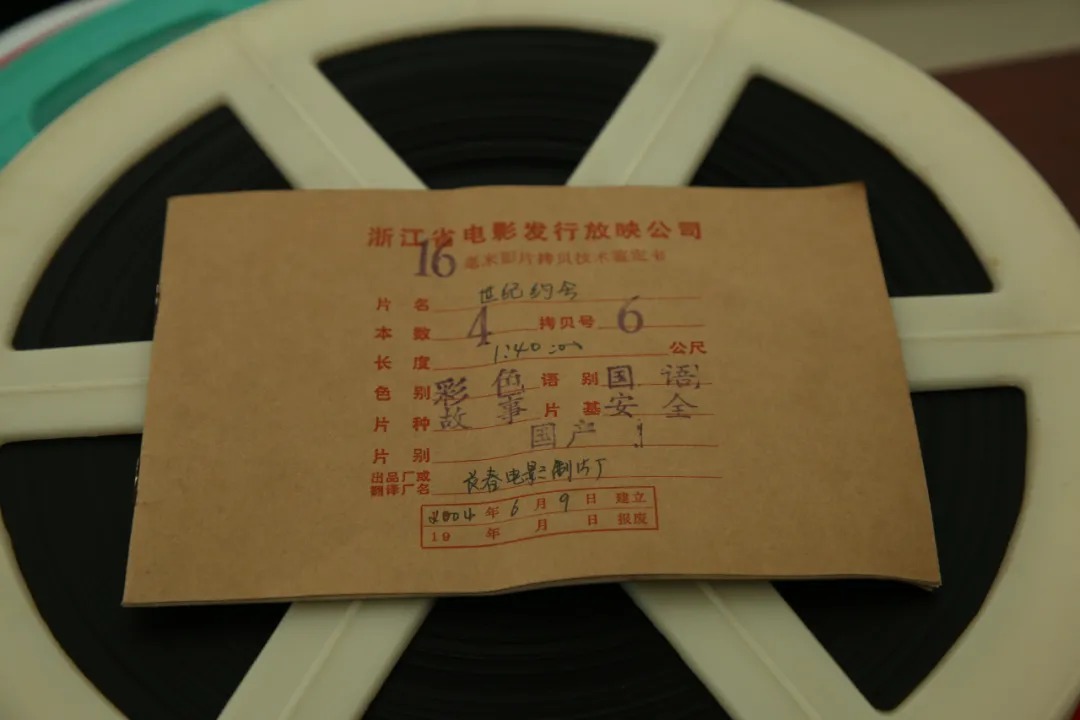 浙江省电影发行放映公司
16毫米影片拷贝技术鉴定书
片名 世纪约会
本数 4 拷贝号 6
长度 1:40:00 公尺
色别 彩色 语别 国语
片种 故事 片基 安全
片别 国产
出品厂或翻译厂名 长春电影制片厂
2004年6月9日建立
19 年 月 日 报废